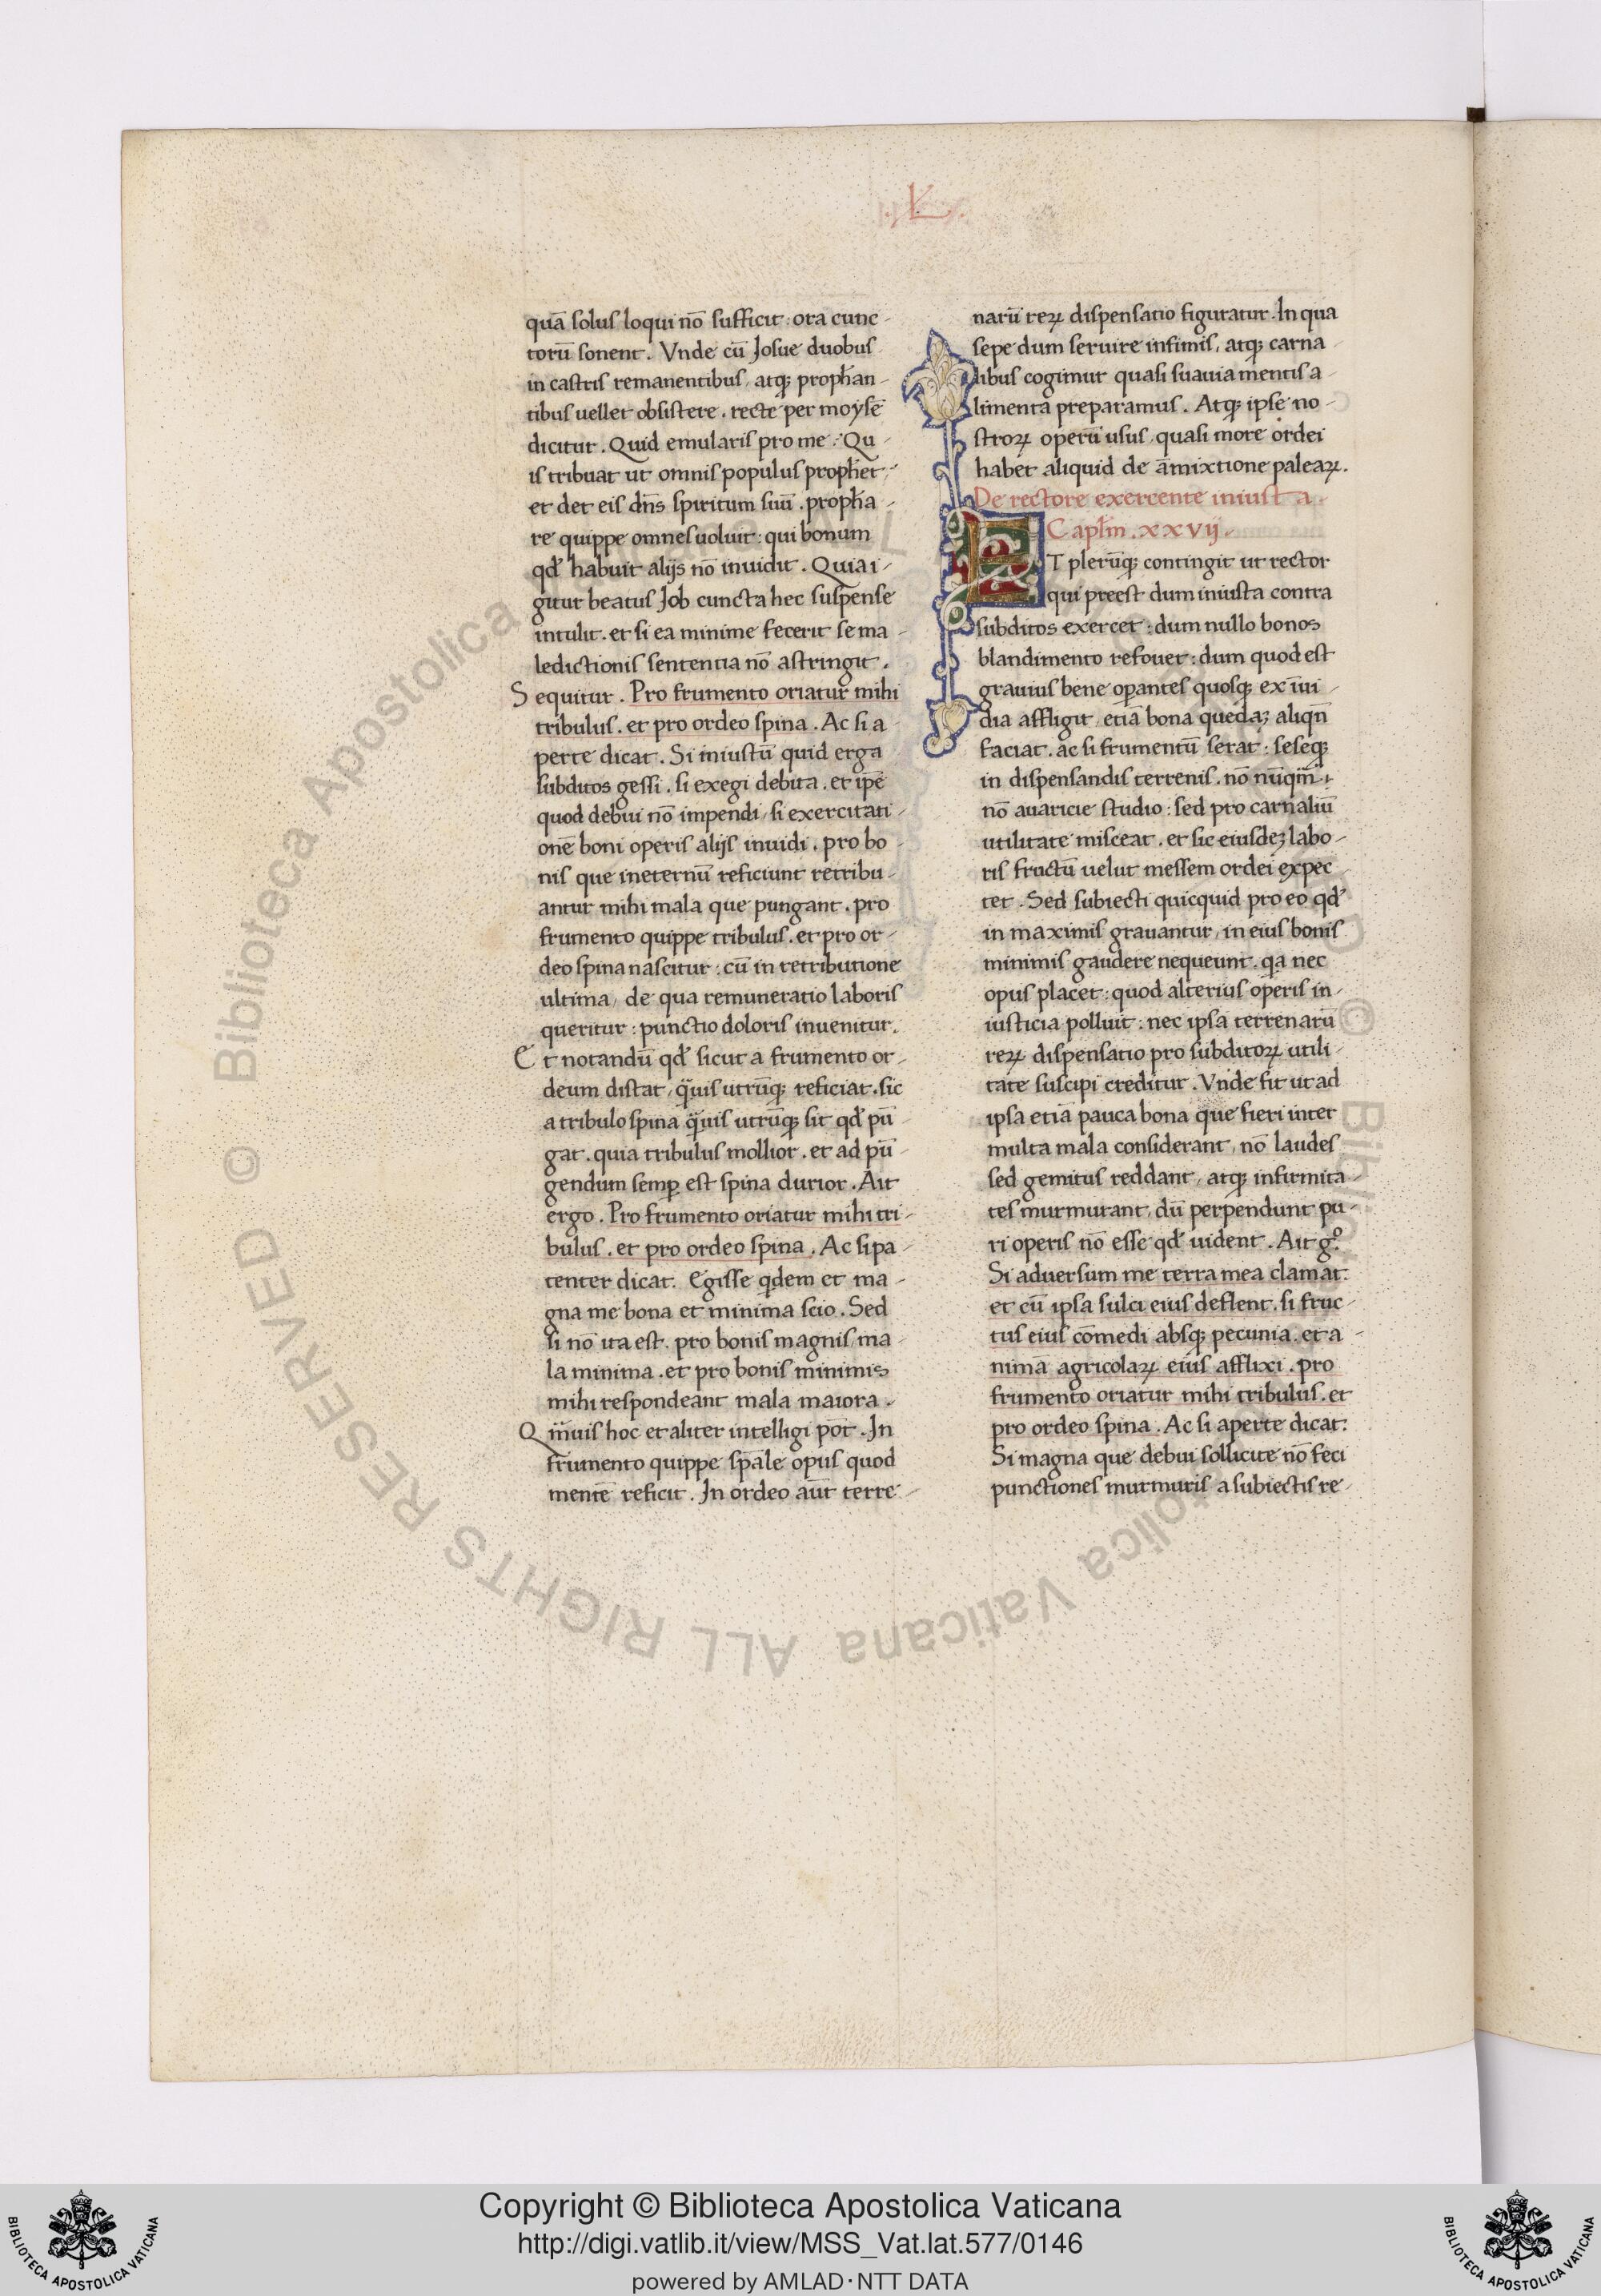 .L.
quā solus loqui nō sufficit : ora cunc-
torū sonent . Vnde cū Josue duobus
in castris remanentibus, atq; prophan-
tibus uellet obsistere . recte per moysē
dicitur . Quid emularis pro me : Qu-
is tribuat ut omnis populus prophet,
et det eis dn̄s spiritum suū . propha-
re quippe omnes uoluit : qui bonum
qd̄ habuit alijs nō inuidit . Quia i-
gitur beatus Job cuncta hec suspense
intulit . et si ea minime fecerit se ma-
ledictionis sententia nō astringit .
Sequitur . Pro frumento oriatur mihi
tribulus . et pro ordeo spina . Ac si a
perte dicat . Si iniustū quid erga
subditos gessi . si exegi debita . et ip̄e
quod debui nō impendi, si exercitati-
onē boni operis alijs inuidi . pro bo-
nis que ineternū reficiunt retribu-
antur mihi mala que pungant . pro
frumento quippe tribulus . et pro or-
deo spina nascitur : cū in retributione
ultima, de qua remuneratio laboris
queritur : punctio doloris inuenitur.
Et notandū qd̄ sicut a frumento or-
deum distat, q̄uis utrūq; reficiat . sic
a tribulo spina q̄uis utrūq; sit qd̄ pū-
gat . quia tribulus mollior . et ad pū-
gendum semp̲ est spina durior . Ait
ergo . Pro frumento oriatur mihi tri-
bulus . et pro ordeo spina . Ac si pa-
tenter dicat . Egisse qdem et ma-
gna me bona et minima scio . Sed
si nō ita est . pro bonis magnis, ma-
la minima . et pro bonis minimis
mihi respondeant mala maiora .
Qm̄uis hoc et aliter intelligi pōt . In
frumento quippe sp̄ale opus quod
mentē reficit . In ordeo aūt terre-
narū reꝝ dispensatio figuratur . In qua
sepe dum seruire infimis, atq; carna-
libus cogimur quasi suauia mentis a-
limenta preparamus . Atq; ipse no-
stroꝝ operū usus, quasi more ordei
habet aliquid de āmixtione paleaꝝ.
De rectore exercente iniusta.
Capl̄m . xxvij.
ET plerūq; contingit ut rector
qui preest dum iniusta contra
subditos exercet : dum nullo bonos
blandimento refouet : dum quod est
grauius bene oꝑantes quosq; ex īui-
dia affligit, etiā bona quedaꝫ aliqn̄
faciat . ac si frumentū serat : seseq;
in dispensandis terrenis . nō nūqm̄,
nō auaricie studio : sed pro carnaliū
utilitate misceat . et sic eiusdeꝫ labo-
ris fructū uelut messem ordei expec-
tet . Sed subiecti quicquid pro eo qd̄
in maximis grauantur, in eius bonis
minimis gaudere nequeunt . qa nec
opus placet : quod alterius operis in-
iusticia polluit : nec ipsa terrenarū
reꝝ dispensatio pro subditoꝝ utili-
tate suscipi creditur . Vnde fit ut ad
ipsa etiā pauca bona que fieri inter
multa mala considerant, nō laudes
sed gemitus reddant, atq; infirmita-
tes murmurant, dū perpendunt pu-
ri operis nō esse qd̄ uident . Ait gͦ.
Si aduersum me terra mea clamat:
et cū ipsa sulci eius deflent . si fruc-
tus eius cōmedi absq; pecunia . et a-
nimā agricolaꝝ eius afflixi . pro
frumento oriatur mihi tribulus . et
pro ordeo spina . Ac si aperte dicat:
Si magna que debui sollicite nō feci
punctiones murmuris a subiectis re-
© Biblioteca Apostolica Vaticana ALL RIGHTS RESERVED
Copyright © Biblioteca Apostolica Vaticana
http://digi.vatlib.it/view/MSS_Vat.lat.577/0146
powered by AMLAD·NTT DATA
BIBLIOTECA APOSTOLICA VATICANA
BIBLIOTECA APOSTOLICA VATICANA